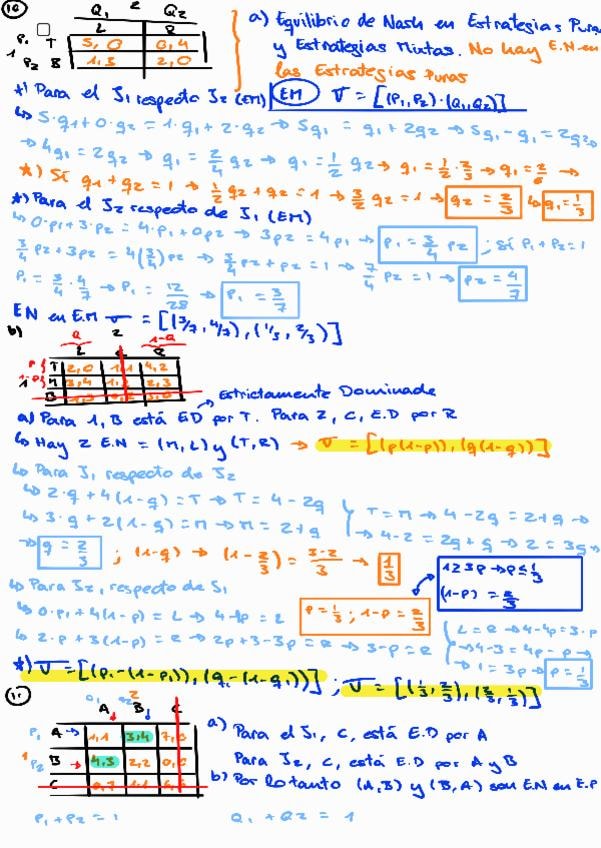 10
Q1 2 Q2
L R
P1 T 5,0 0,4
1 P2 B 1,3 2,0
a) Equilibrio de Nash en Estrategias Puras
y Estrategias Mixtas. No hay E.N en
las Estrategias Puras
*) Para el J1 respecto J2 (EM) EM ∇ = [(P1,P2)·(Q1,Q2)]
↳ 5·q1+0·q2 = 1·q1+2·q2 → 5q1 = q1+2q2 → 5q1-q1 = 2q2
→ 4q1 = 2q2 → q1 = 2/4 q2 → q1 = 1/2 q2 → q1 = 1/2·2/3 → q1 = 2/6 →
*) Si q1+q2 = 1 → 1/2 q2+q2 = 1 → 3/2 q2 = 1 → q2 = 2/3 ↳ q1 = 1/3
*) Para el J2 respecto de J1 (EM)
↳ 0·P1+3·P2 = 4·P1+0P2 → 3P2 = 4P1 → P1 = 3/4 P2 ; Si P1+P2=1
3/4 P2+3P2 = 4(3/4)P2 → 3/4 P2+P2 = 1 → 7/4 P2 = 1 → P2 = 4/7
P1 = 3/4·4/7 → P1 = 12/28 → P1 = 3/7
EN en E.M ∇ = [(3/7, 4/7), (1/3, 2/3)]
b)
Q 2 1-Q
L C R
P T 2,0 1,1 4,2
1 1-P M 3,4 1,2 2,3
B 1,3 0,2 3,0
Estrictamente Dominada
a) Para 1, B está ED por T. Para 2, C, E.D por R
↳ Hay 2 E.N = (M,L) y (T,R) → ∇ = [(p(1-p)), (q(1-q))]
↳ Para J1 respecto de J2
↳ 2·q + 4(1-q) = T → T = 4-2q
↳ 3·q + 2(1-q) = M → M = 2+q
T = M → 4-2q = 2+q →
→ 4-2 = 2q+q → 2 = 3q →
→ q = 2/3 ; (1-q) → (1-2/3) = 3-2/3 → 1/3
↳ Para J2, respecto de S1
1≥3p → p≤1/3
(1-p) = 2/3
↳ 0·P1+4(1-p) = L → 4-4p = L
p = 1/3 ; 1-p = 2/3
↳ 2·p + 3(1-p) = R → 2p+3-3p = R → 3-p = R
L = R → 4-4p = 3-p
→ 4-3 = 4p-p →
→ 1 = 3p → p = 1/3
*) ∇ = [(P1-(1-P1)), (q1-(1-q1))] ; ∇ = [(1/3, 2/3), (2/3, 1/3)]
11
Q1 Q2 2
A B C
P1 A → 1,1 3,4 7,0
1 P2 B → 4,3 2,2 0,0
C
a) Para el J1, C, está E.D por A
Para J2, C, está E.D por A y B
b) Por lo tanto (A,B) y (B,A) son E.N en E.P
P1+P2 = 1 Q1 + Q2 = 1